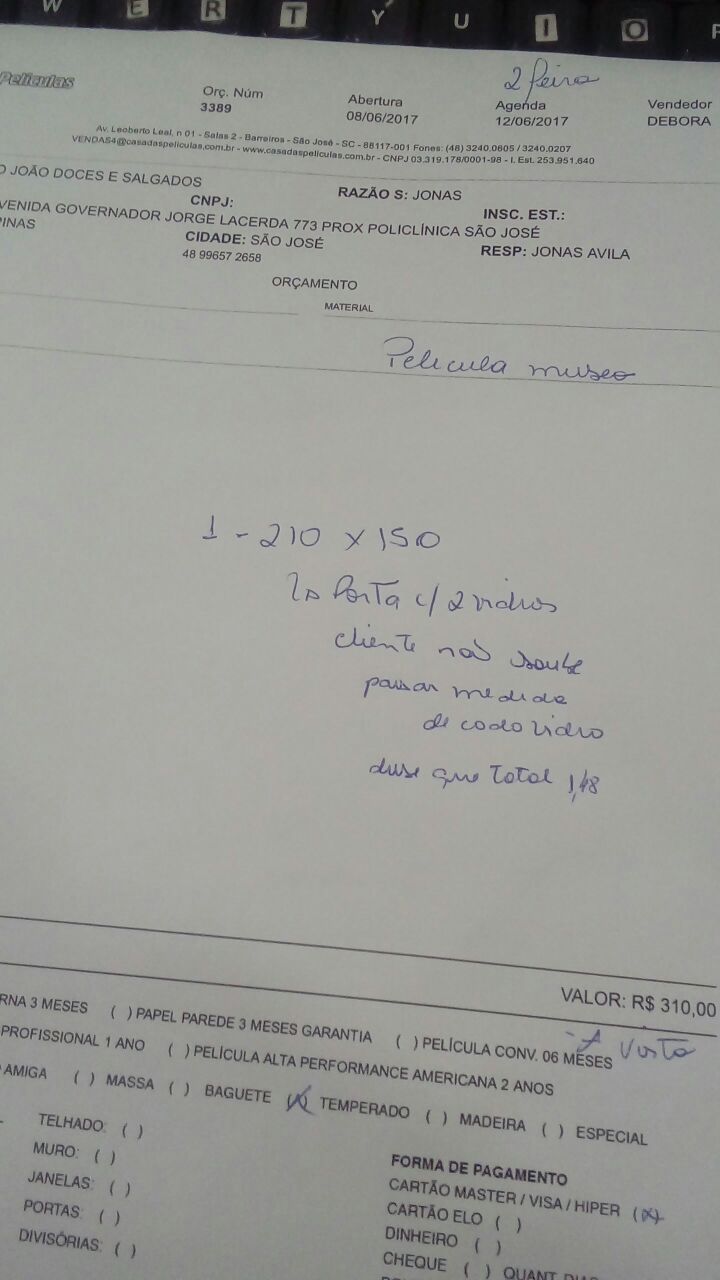 W E R T Y U I O P
Películas
2 feira
Orç. Núm
3389
Abertura
08/06/2017
Agenda
12/06/2017
Vendedor
DEBORA
Av. Leoberto Leal, n 01 - Salas 2 - Barreiros - São José - SC - 88117-001 Fones: (48) 3240.0605 / 3240.0207
VENDAS4@casadaspeliculas.com.br - www.casadaspeliculas.com.br - CNPJ 03.319.178/0001-98 - I. Est. 253.951.640
O JOÃO DOCES E SALGADOS
CNPJ:
RAZÃO S: JONAS
INSC. EST.:
VENIDA GOVERNADOR JORGE LACERDA 773 PROX POLICLÍNICA SÃO JOSÉ
PINAS
CIDADE: SÃO JOSÉ
RESP: JONAS AVILA
48 99657 2658
ORÇAMENTO
MATERIAL
Pelicula museo
1 - 210 x 150
Porta c/ 2 vidros
cliente não soube
passar medida
de cada vidro
disse que total 1,48
VALOR: R$ 310,00
- A Vista
RNA 3 MESES ( ) PAPEL PAREDE 3 MESES GARANTIA ( ) PELÍCULA CONV. 06 MESES
PROFISSIONAL 1 ANO ( ) PELÍCULA ALTA PERFORMANCE AMERICANA 2 ANOS
AMIGA ( ) MASSA ( ) BAGUETE (X) TEMPERADO ( ) MADEIRA ( ) ESPECIAL
TELHADO: ( )
MURO: ( )
JANELAS: ( )
PORTAS: ( )
DIVISÓRIAS: ( )
FORMA DE PAGAMENTO
CARTÃO MASTER / VISA / HIPER (X)
CARTÃO ELO ( )
DINHEIRO ( )
CHEQUE ( ) QUANT.